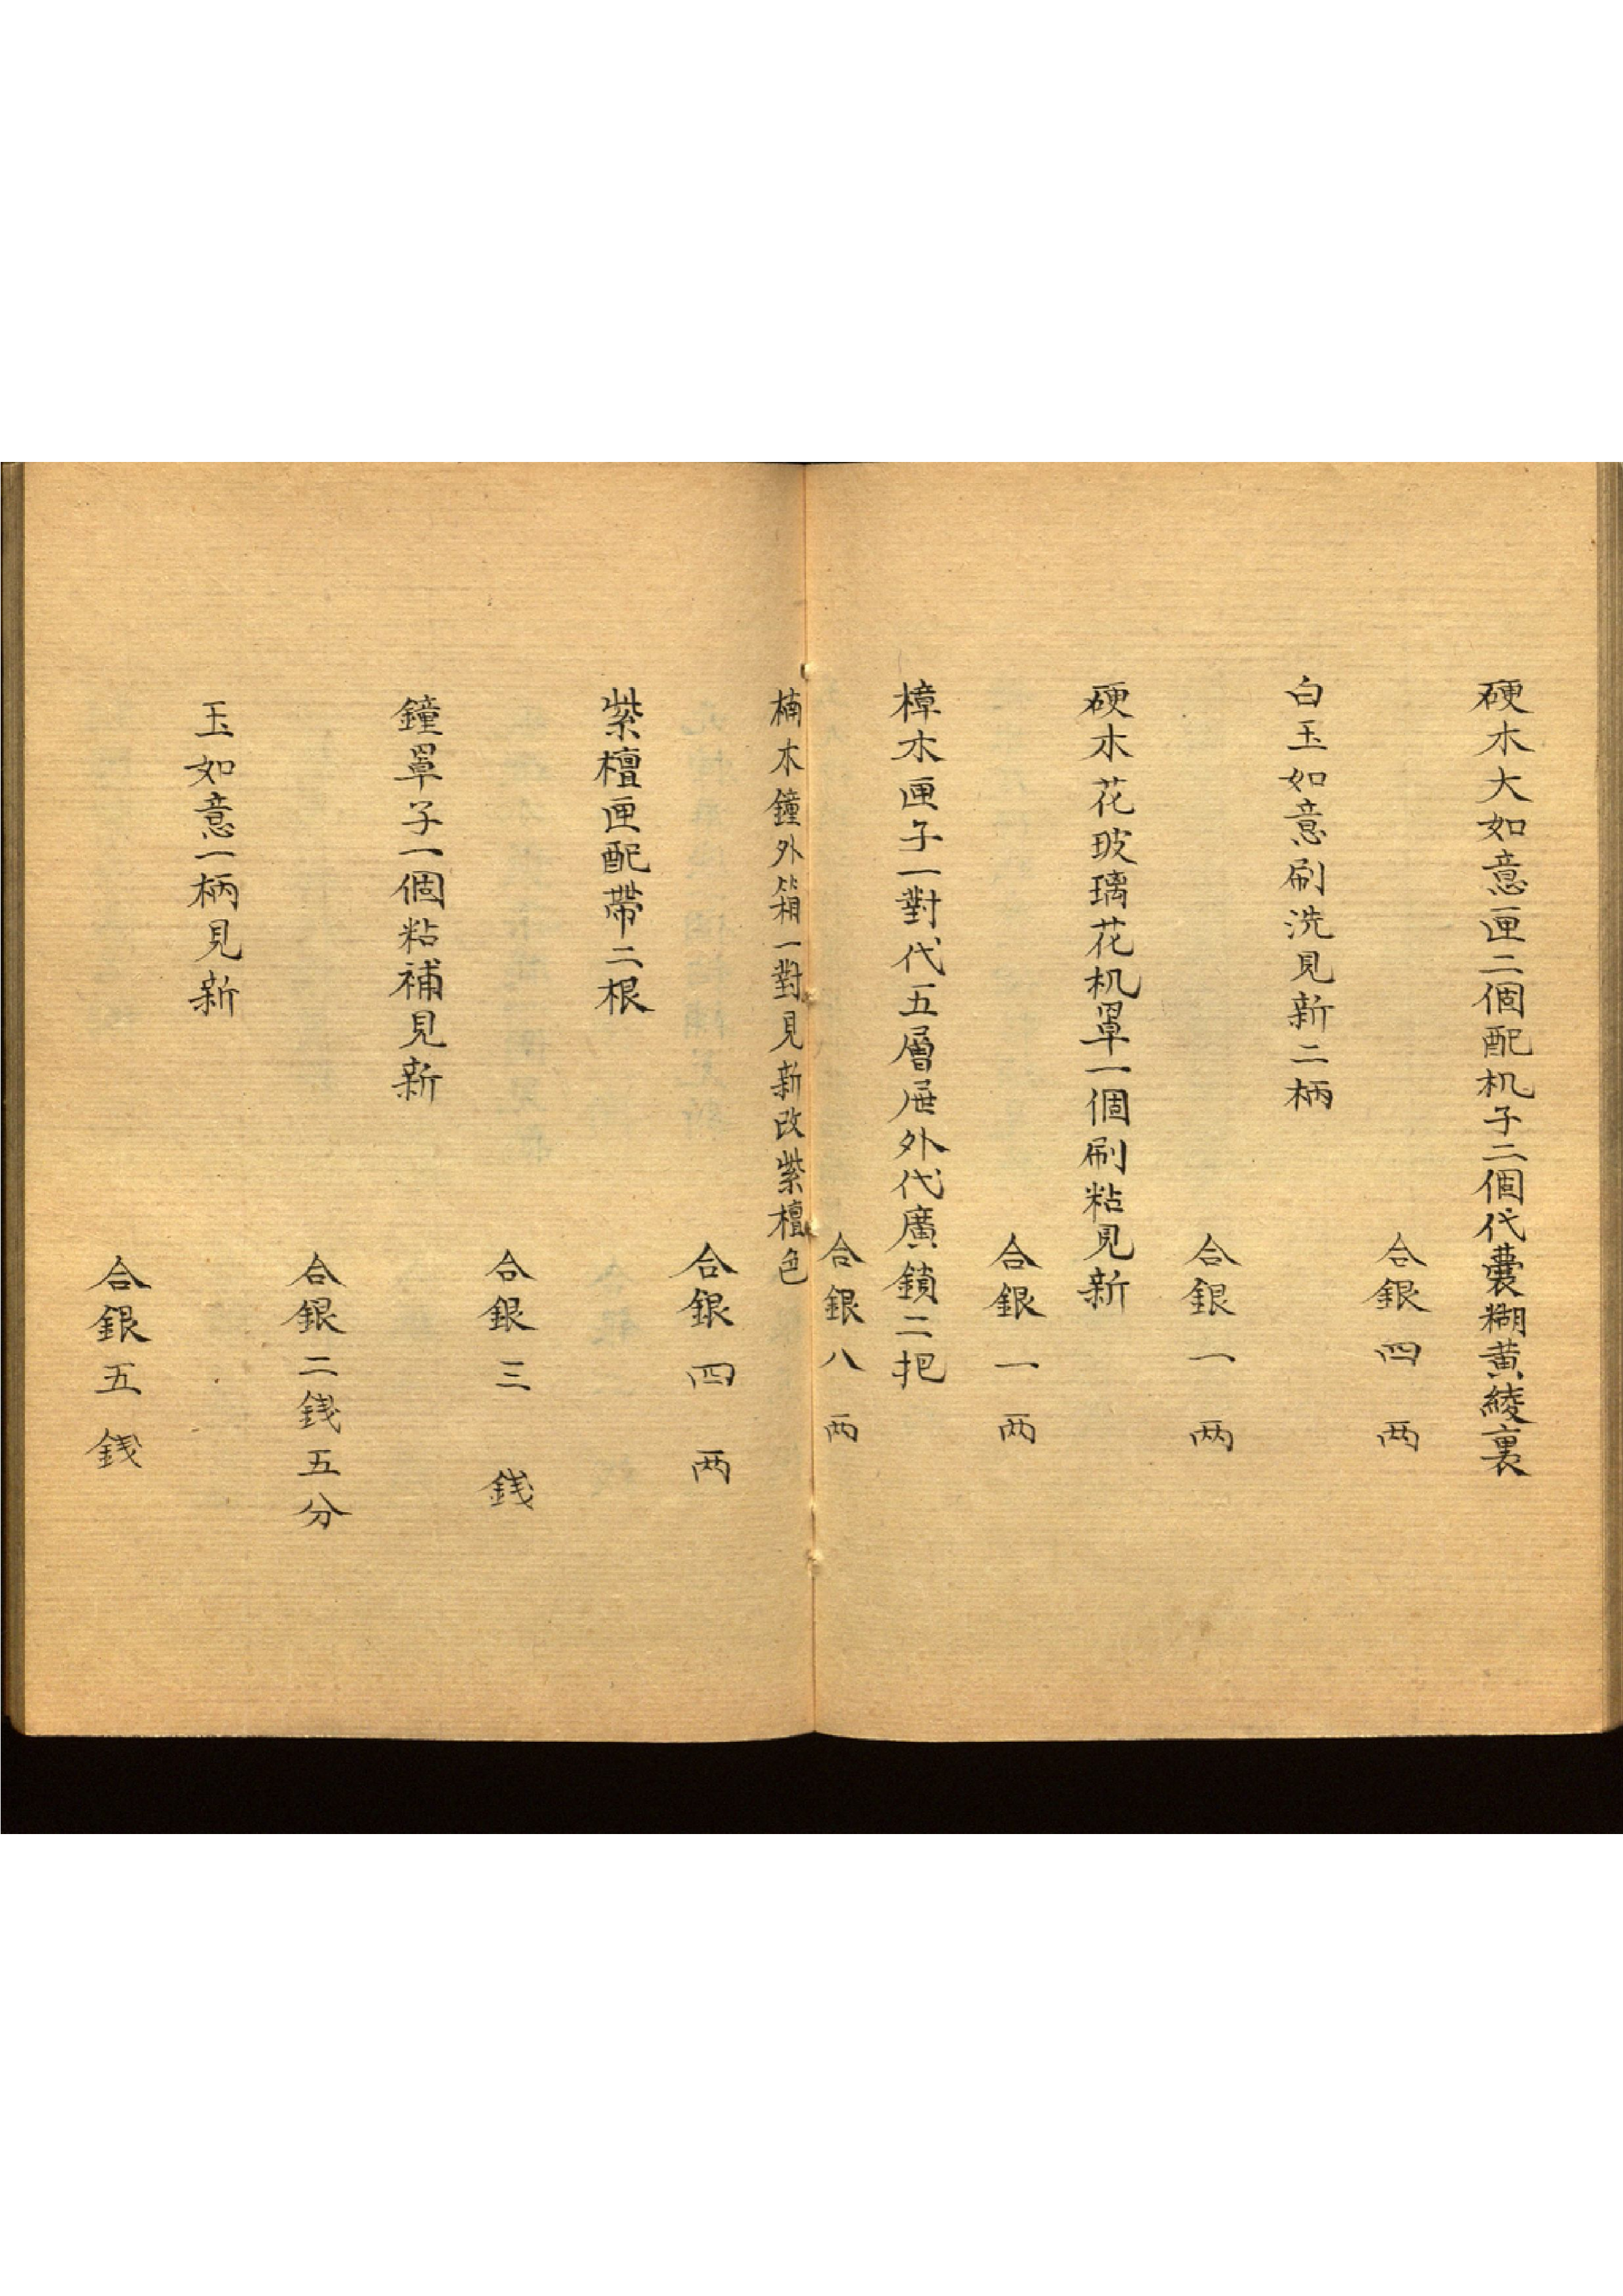 硬木大如意匣二個配机子二個代囊糊黃綾裏
合銀四两
白玉如意刷洗見新二柄
合銀一两
硬木花玻璃花机罩一個刷粘見新
合銀一两
樟木匣子一對代五層屉外代廣鎖二把
合銀八两
楠木鐘外箱一對見新改紫檀色
合銀四两
紫檀匣配帶二根
合銀三銭
鐘罩子一個粘補見新
合銀二銭五分
玉如意一柄見新
合銀五銭